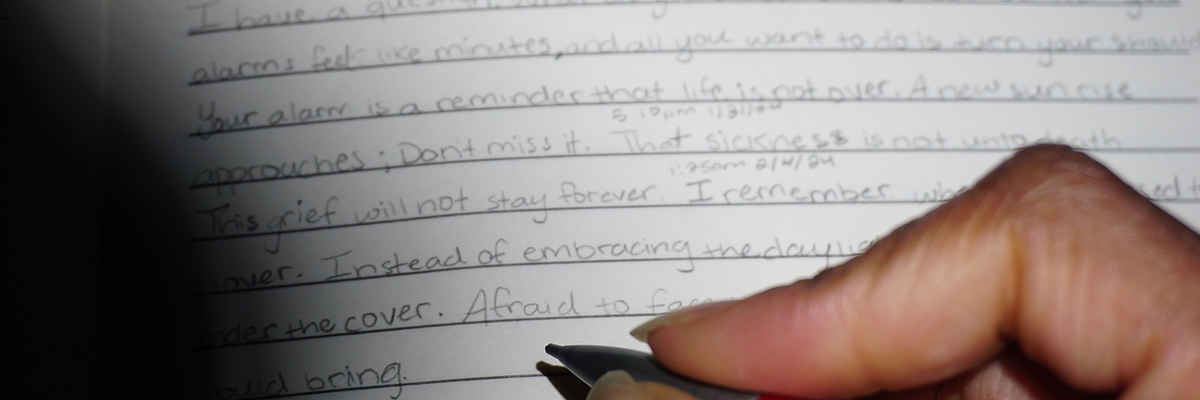 I have a question.
alarms feel like minutes, and all you want to do is turn your
Your alarm is a reminder that life is not over. A new sun rise
5:10pm 1/31/24
approaches; Dont miss it. That sickness is not unto death
1:25am 2/4/24
This grief will not stay forever. I remember
hover. Instead of embracing the
under the cover. Afraid to
would bring.